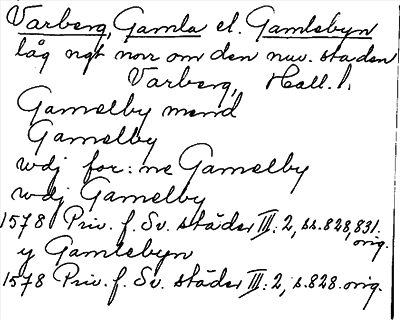 Varberg, Gamla el. Gamlebyn
låg ngt norr om den nuv. staden
Varberg, Hall. l.
Gamelby mend
Gamelby
wdj for:ne Gamelby
wdj Gamelby
1578 Priv. f. Sv. städer III:2, ss. 828, 831.
orig.
y Gamlebyn
1578 Priv. f. Sv. städer III:2, s. 828. orig.